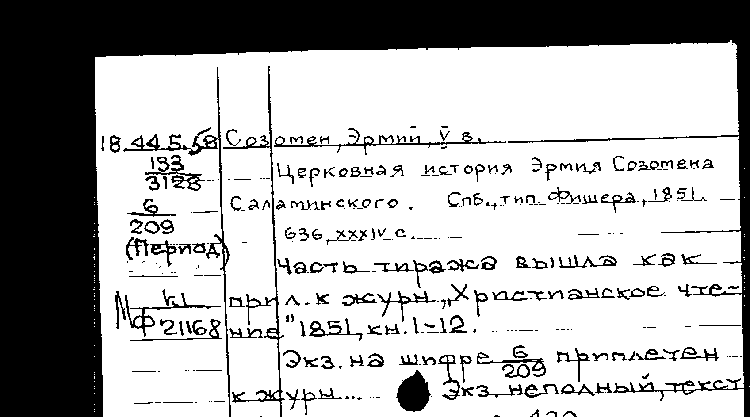 18.44.5.58 Созомен, Эрмий, V в.
133
3128
Церковная история Эрмия Созомена
6
209
Саламинского. Спб., тип. Фишера, 1851.
(Период)
636, XXXIV с.
Часть тиража вышла как
К1
прил. к журн. „Христианское чте-
МФ 21168
ние" 1851, кн. 1-12.
Экз. на шифре 6/209 приплетен
к журн... Экз. неполный, текст